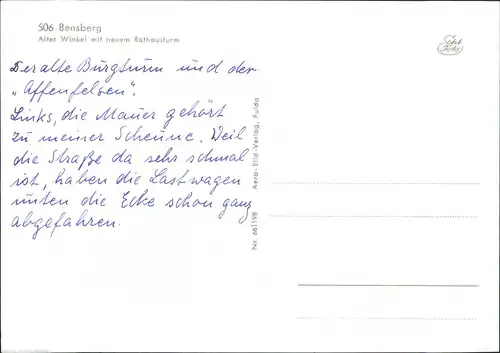 506 Bensberg
Alter Winkel mit neuem Rathausturm
Der alte Burgturm und der
„Affenfelsen".
Links, die Mauer gehört
zu meiner Scheune. Weil
die Straße da sehr schmal
ist, haben die Lastwagen
unten die Ecke schon ganz
abgefahren.
Nr. 661198 Aero-Bild-Verlag, Fulda